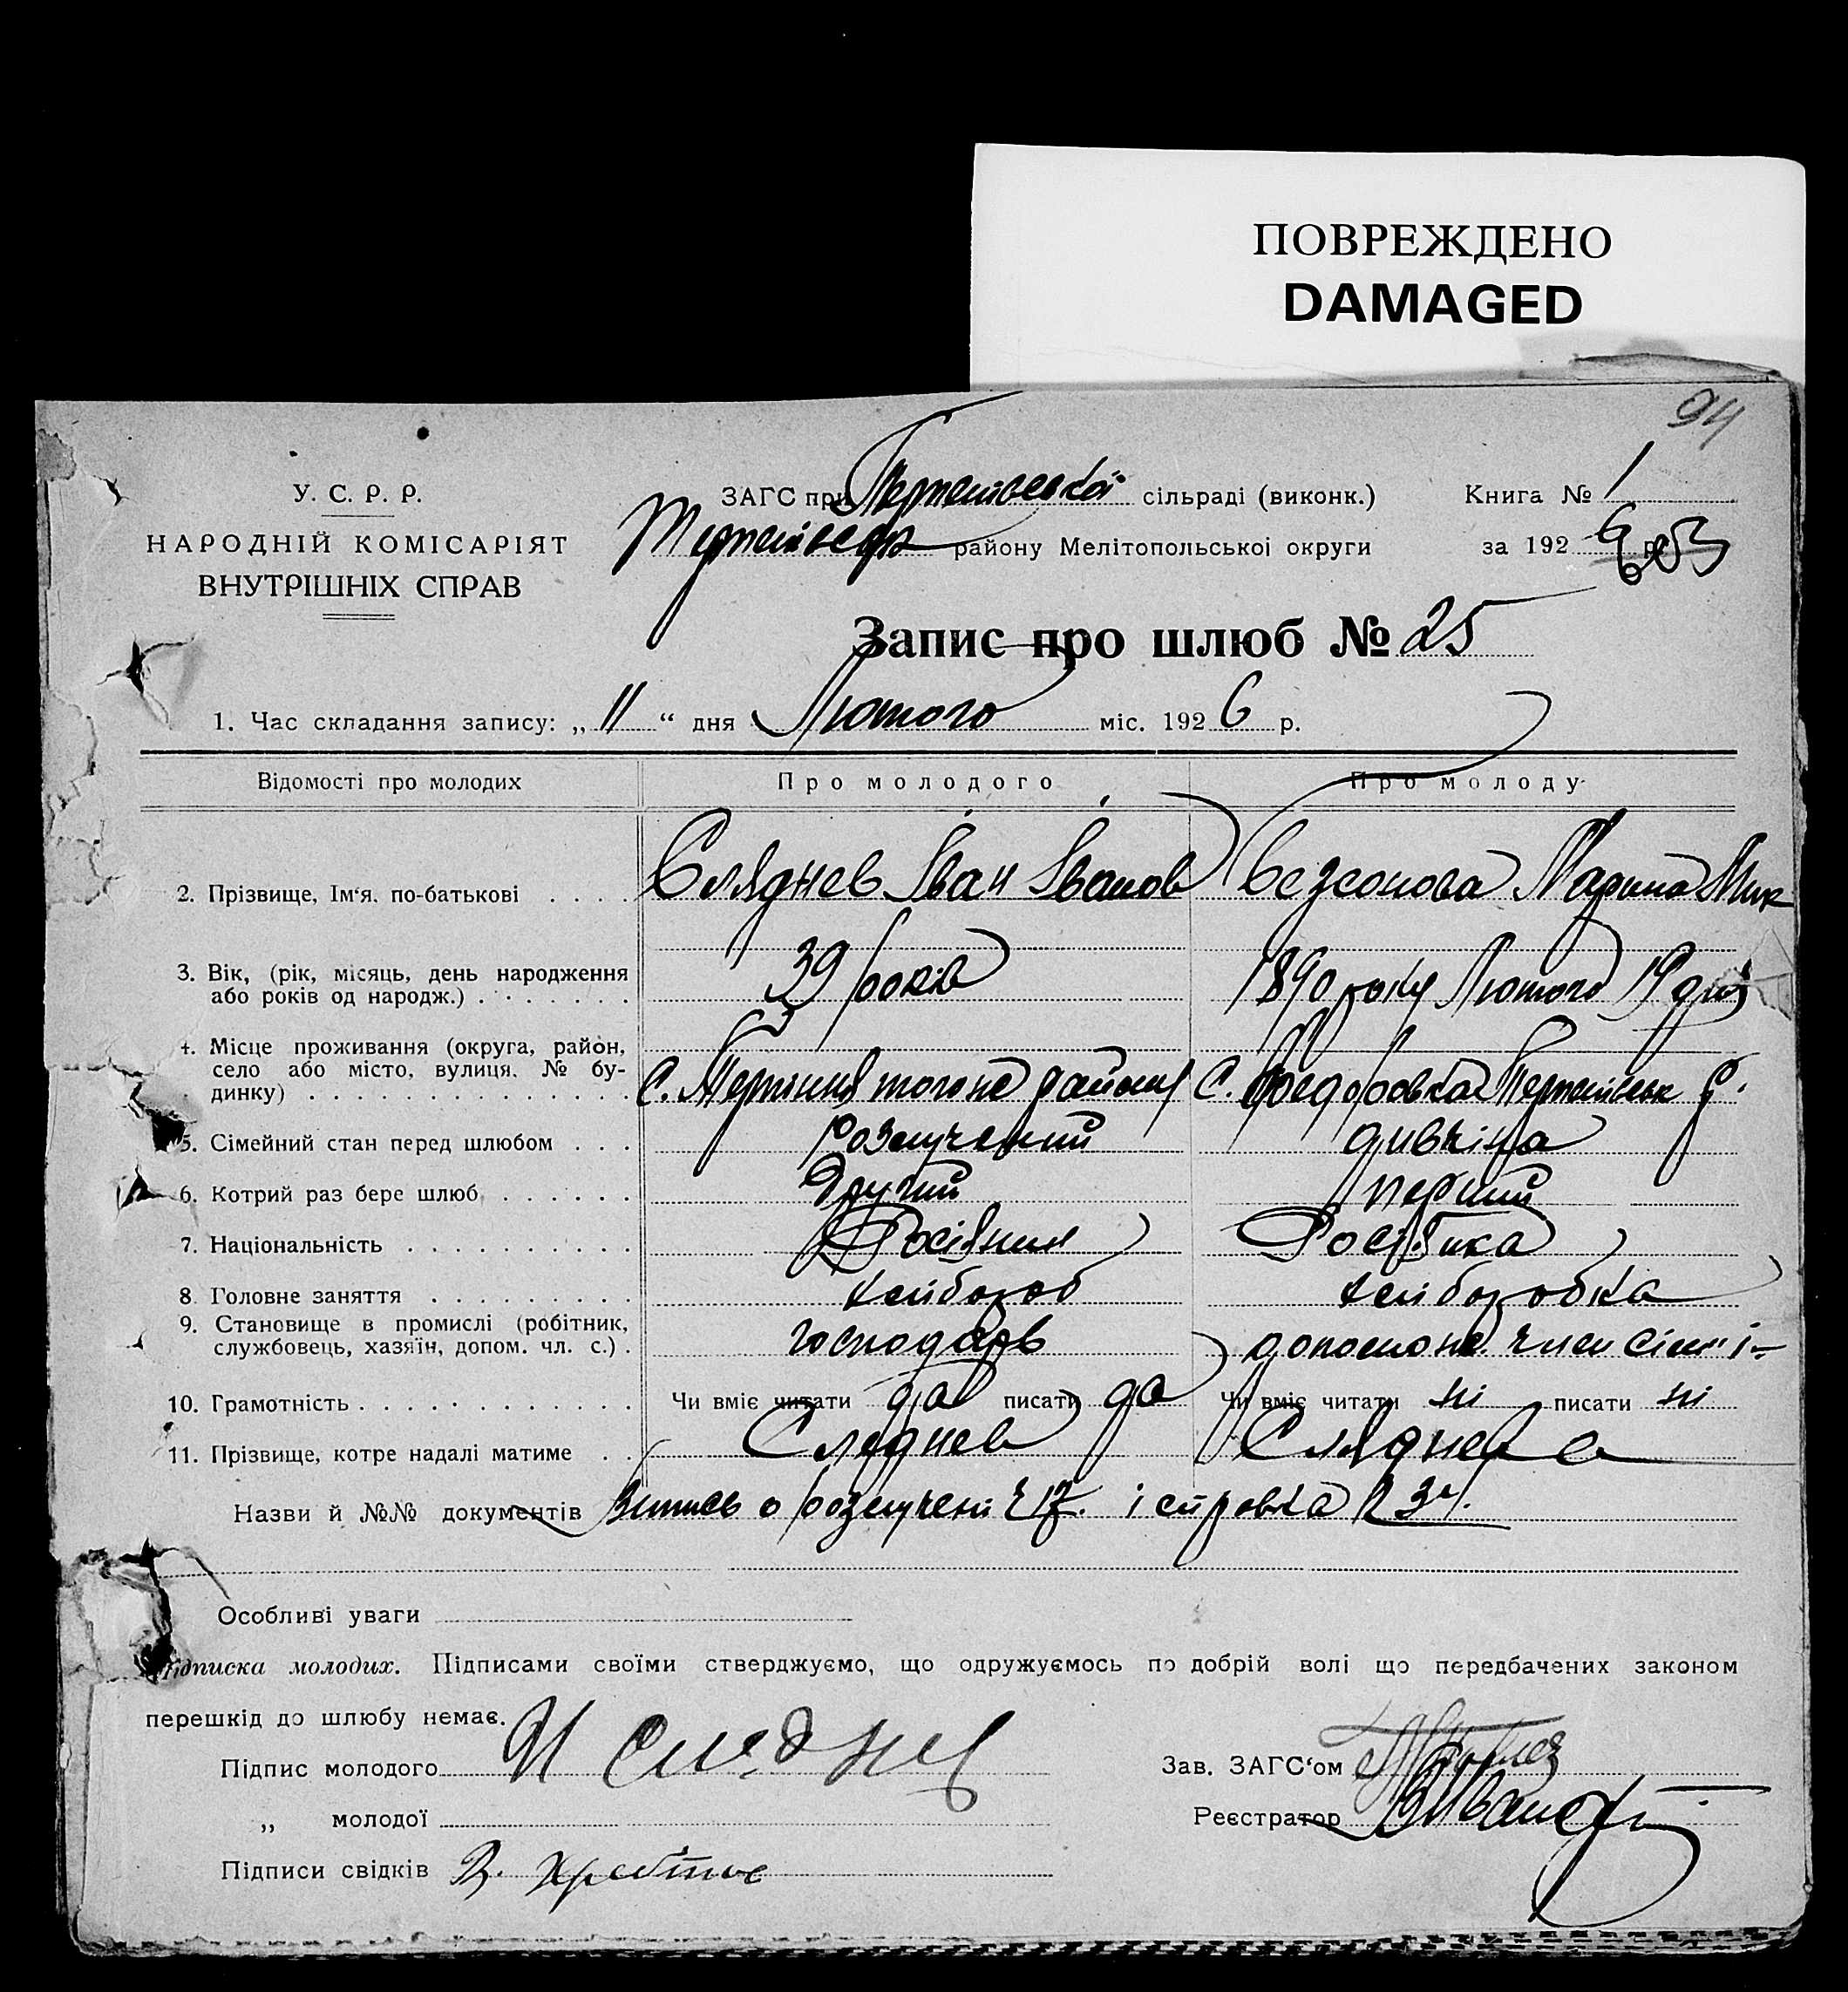 ПОВРЕЖДЕНО
DAMAGED
94
У. С. Р. Р.
НАРОДНІЙ КОМІСАРІЯТ
ВНУТРІШНІХ СПРАВ
ЗАГС при Терпеньевської сільраді (виконк.)
району Мелітопольської округи
Книга № 1
за 192 6 р.
Запис про шлюб № 25
1. Час складання запису: „ 11 “ дня Лютого міс. 192 6 р.
Відомості про молодих Про молодого Про молоду
2. Прізвище, Ім'я, по-батькові . . . . Следнев Іван Іванов Безсонова Марина Мик
3. Вік, (рік, місяць, день народження
або років од народж.) . . . . . . . 39 років 1890 року Лютого 19 дня
4. Місце проживання (округа, район,
село або місто, вулиця, № бу-
динку) . . . . . . . . . . . . . . С. Терпіння того же району С. Федоровка Терпеньевськ р.
5. Сімейний стан перед шлюбом . . . розлучений дивчина
6. Котрий раз бере шлюб . . . . . . Другий перший
7. Національність . . . . . . . . . . Росіянин Росіянка
8. Головне заняття . . . . . . . . . хлібороб хлiборобка
9. Становище в промислі (робітник,
службовець, хазяїн, допом. чл. с.) . господарь допомож. член сімї
10. Грамотність . . . . . . . . . . . . Чи вміє читати да писати да Чи вміє читати ні писати ні
11. Прізвище, котре надалі матиме . . Следнев Следнева
Назви й №№ документів Випись о розлучені і справка
Особливі уваги
Підписка молодих. Підписами своїми стверджуємо, що одружуємось по добрій волі що передбачених законом
перешкід до шлюбу немає.
Підпис молодого И Следнев
Зав. ЗАГС'ом
„ молодої
Реєстратор
Підписи свідків